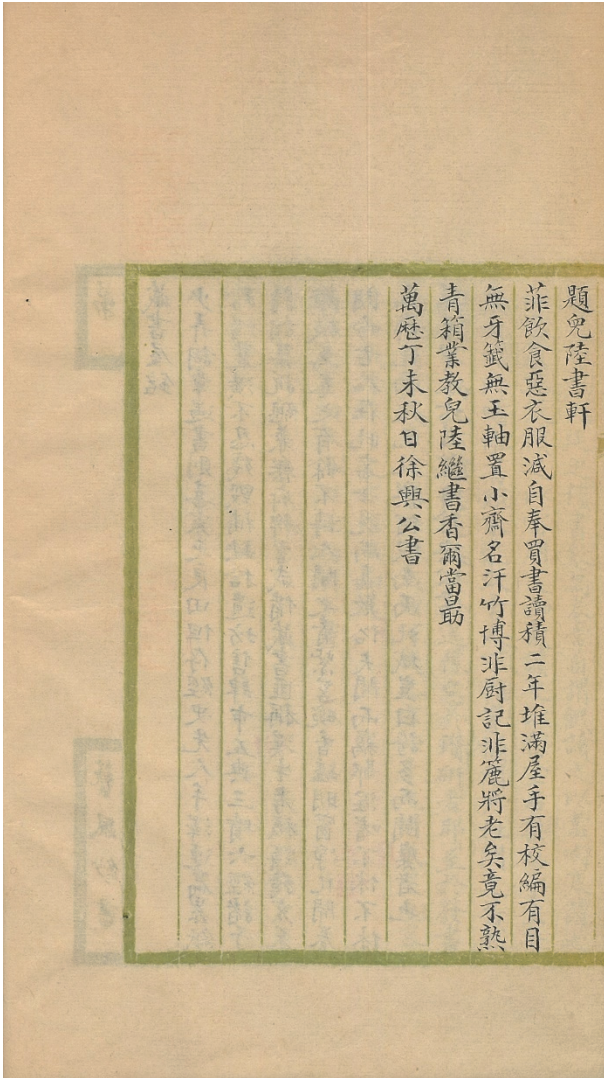 題兒陸書軒
菲飲食惡衣服減自奉買書讀積二年堆滿屋手有校編有目
無牙籤無玉軸置小齋名汗竹博非厨記非簏將老矣竟不熟
青箱業教兒陸繼書香爾當勗
萬歷丁未秋日徐興公書